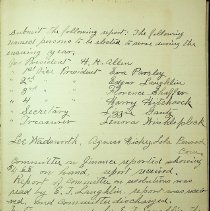 Submit the following report. The following
named persons to be elected to serve during the
ensuing year,
For President H. H. Allen
1st Vice President Eva Presley
2nd " " Edgar Laughlin
3rd " " Florence Shaffer
4 " " Harry Hitchcock
" Secretary Lizzie
" Treasurer Lenora
Lee Wadsworth, Agness
Com.
Committee on finance reported showing
on hand, report received.
Report of committee on resolutions was
read by E. J. Laughlin. report was receiv-
ed, and committee discharged.